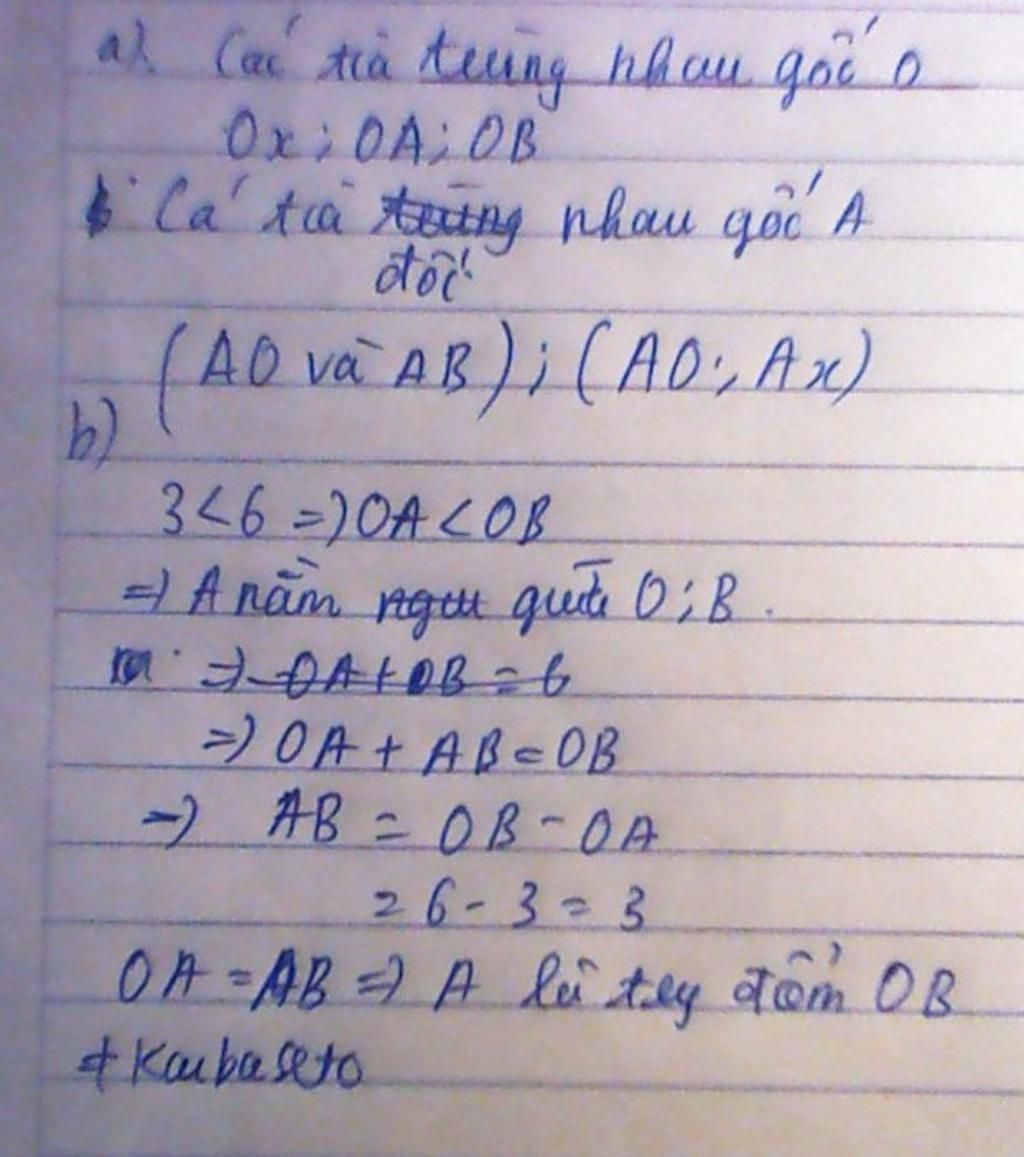 a) Các tia trùng nhau gốc O
Ox; OA; OB
Cá tia trùng nhau gốc A
đối
(AO và AB); (AO; Ax)
b)
3<6 => OA<OB
=> A nằm giữa O; B.
=> OA+OB=6
=> OA + AB=OB
=> AB = OB - OA
= 6 - 3 = 3
OA = AB => A là điểm OB
+ Kaibaseto